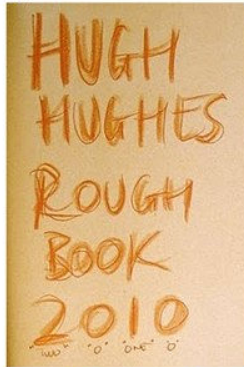 HUGH
HUGHES
ROUGH
BOOK
2010
"TWO" "O" "ONE" "O"